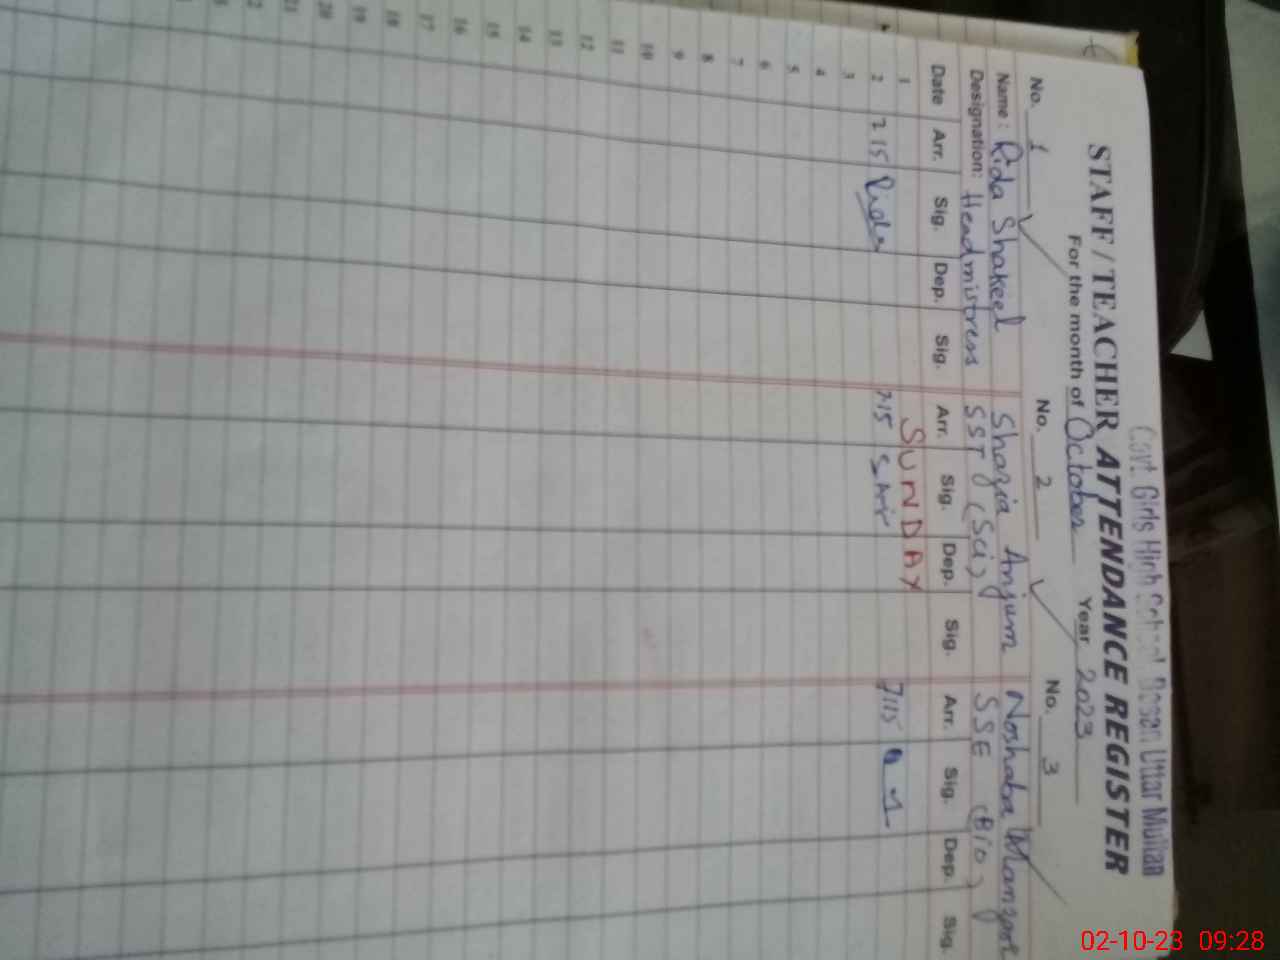 Govt. Girls High School Bosan Uttar Multan
STAFF / TEACHER ATTENDANCE REGISTER
For the month of October Year 2023
No. 1 No. 2 No. 3
Name: Rida Shakeel Shazia Anjum Noshaba Manzoor
Designation: Headmistress SST (Sci) SSE (Bio)
Date Arr. Sig. Dep. Sig. Arr. Sig. Dep. Sig. Arr. Sig. Dep. Sig.
1 SUNDAY
2 7 15 Rida 7:15 7:15
3
4
5
6
7
8
9
10
11
12
13
14
15
16
17
18
19
20
21
22
02-10-23 09:28